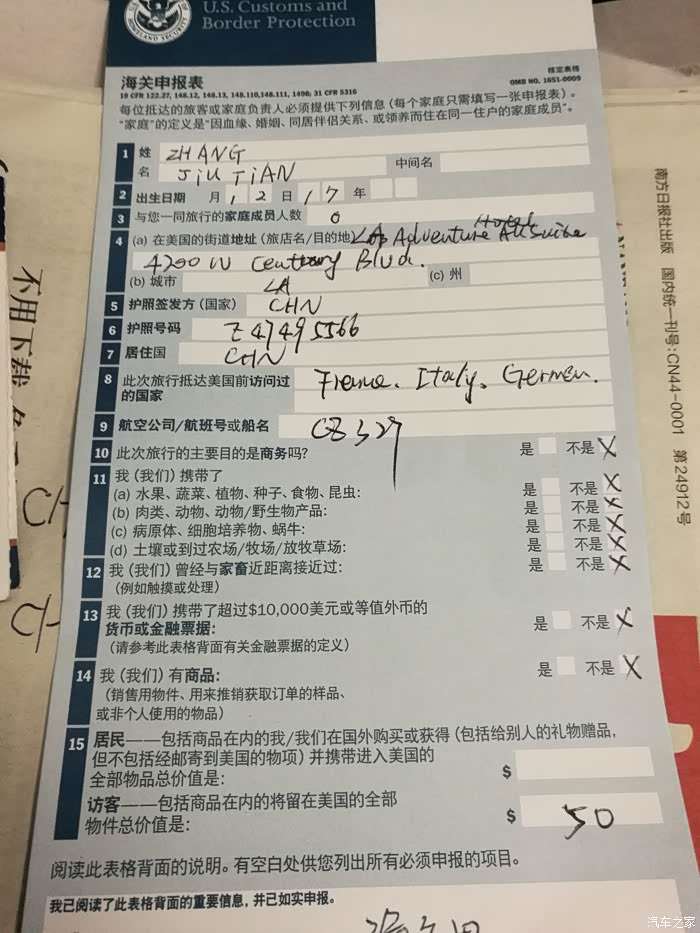 U.S. Customs and
Border Protection
海关申报表
核定表格
OMB NO. 1651-0009
19 CFR 122.27, 148.12, 148.13, 148.110,148.111, 1498; 31 CFR 5316
每位抵达的旅客或家庭负责人必须提供下列信息（每个家庭只需填写一张申报表）。
“家庭”的定义是“因血缘、婚姻、同居伴侣关系、或领养而住在同一住户的家庭成员”。
1 姓 ZHANG
名 JIUTIAN 中间名
2 出生日期 月 12 日 17 年
3 与您一同旅行的家庭成员人数 0
4 (a) 在美国的街道地址（旅店名/目的地） Adventure Hotel
4200 W Century Blvd.
(b) 城市 LA (c) 州
5 护照签发方（国家） CHN
6 护照号码 Z47495566
7 居住国 CHN
8 此次旅行抵达美国前访问过
的国家 Italy. German.
9 航空公司/航班号或船名 CZ327
10 此次旅行的主要目的是商务吗? 是 不是 X
11 我（我们）携带了
(a) 水果、蔬菜、植物、种子、食物、昆虫: 是 不是 X
(b) 肉类、动物、动物/野生物产品: 是 不是 X
(c) 病原体、细胞培养物、蜗牛: 是 不是 X
(d) 土壤或到过农场/牧场/放牧草场: 是 不是 X
12 我（我们）曾经与家畜近距离接近过: 是 不是 X
(例如触摸或处理)
13 我（我们）携带了超过$10,000美元或等值外币的
货币或金融票据: 是 不是 X
(请参考此表格背面有关金融票据的定义)
14 我（我们）有商品: 是 不是 X
(销售用物件、用来推销获取订单的样品、
或非个人使用的物品)
15 居民——包括商品在内的我/我们在国外购买或获得（包括给别人的礼物赠品,
但不包括经邮寄到美国的物项）并携带进入美国的
全部物品总价值是: $
访客——包括商品在内的将留在美国的全部
物件总价值是: $ 50
阅读此表格背面的说明。有空白处供您列出所有必须申报的项目。
我已阅读了此表格背面的重要信息，并已如实申报。
南方日报社出版 国内统一刊号:CN44-0001 第24912号
不用下载
汽车之家